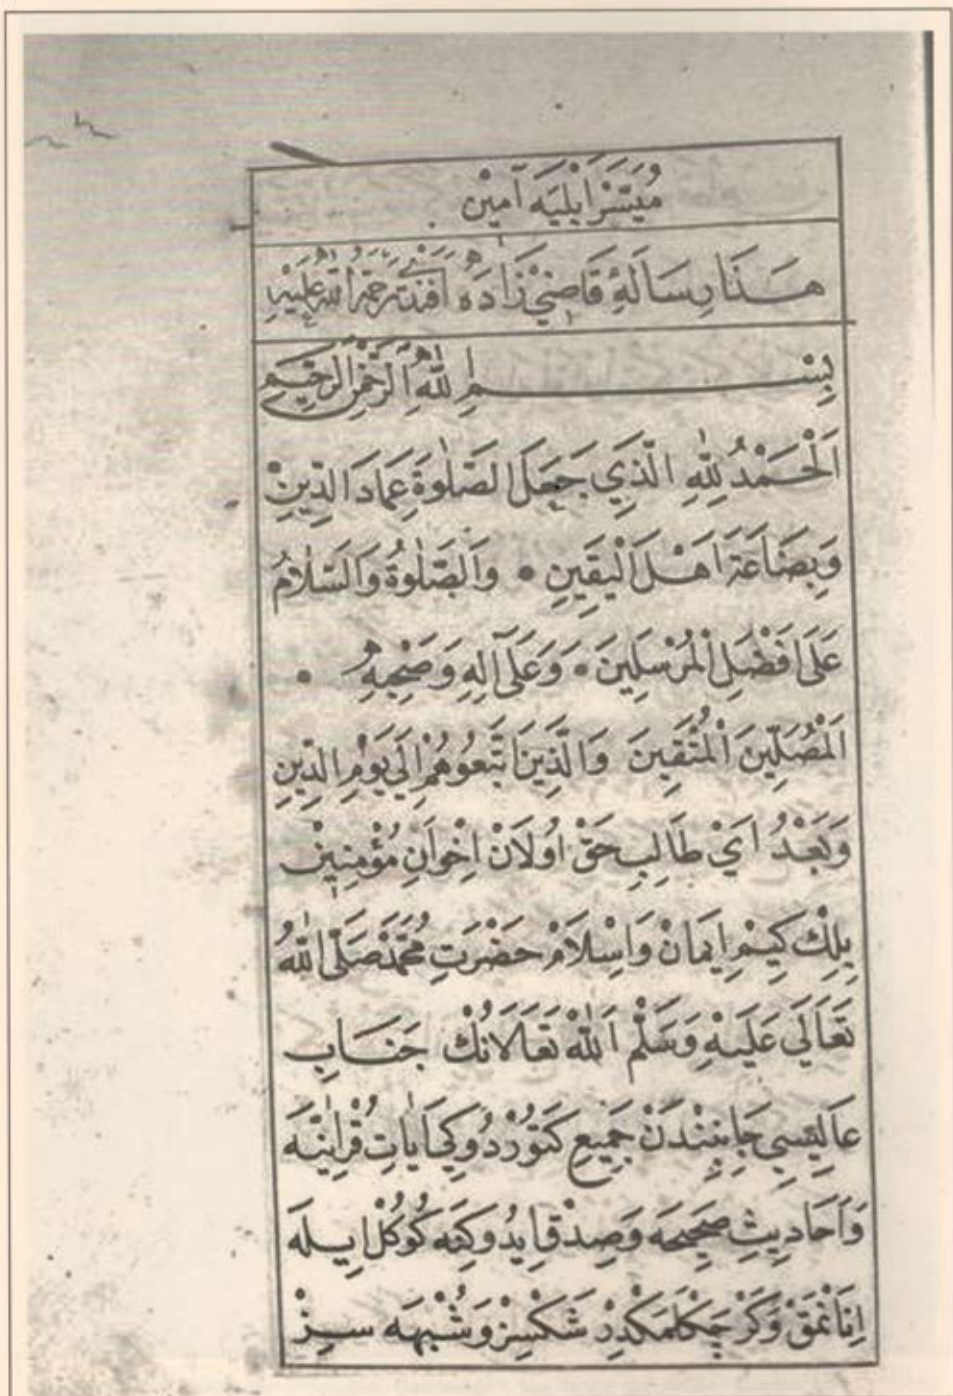 مُيَسَّرْ اَيْلِيَه اٰمِيْن
هٰذَا رِسَالَهِٔ قَاضِيْ زَادَهْ اَفَنْدِيْ رَحْمَةُ اللّٰهِ عَلَيْهِ
بِسْمِ اللّٰهِ الرَّحْمٰنِ الرَّحِيمِ
اَلْحَمْدُ لِلّٰهِ الَّذِي جَعَلَ الصَّلٰوةَ عِمَادَ الدِّينِ
وَبِضَاعَةَ اَهْلَ الْيَقِينِ • وَالصَّلٰوةُ وَالسَّلَامُ
عَلَى اَفْضَلِ الْمُرْسَلِينَ • وَعَلَى آلِهِ وَصَحْبِهِ •
اَلْمُصَلِّينَ الْمُتَّقِينَ وَالَّذِينَ اتَّبَعُوهُمْ اِلَى يَوْمِ الدِّينِ
وَبَعْدُ اَيْ طَالِبِ حَقْ اُولَانْ اِخْوَانِ مُؤْمِنِينْ
بِلِكْ كِيمْ اِيمَانْ وَاِسْلَامْ حَضْرَتِ مُحَمَّدْ صَلَّى اللّٰهُ
تَعَالَى عَلَيْهِ وَسَلَّمْ اَللّٰهْ تَعَالَانُكْ جَنَابِ
عَالِيسِي جَانِبِنْدَنْ جَمِيعِ كَتُورْدُوكِي اٰيَاتِ قُرْاٰنِيَّه
وَاَحَادِيثِ صَحِيحَه وَصِدْقْ اِيدُوكِنَه كُوكُلْ اِيلَه
اِنَانْمَقْ وَكَرْجَكْلَمَكْدِرْ شَكْسِزْ وَشُبْهَه سِيزْ